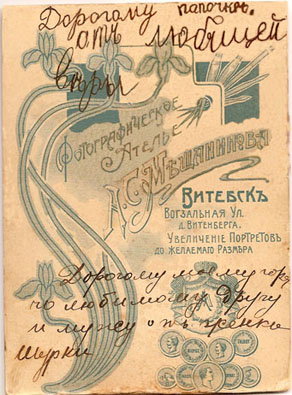 Дорогому папочке
отъ любящей
Веры
Фотографическое
Ателье
А. С. Мещанинова
Витебскъ
Вокзальная Ул.
д. Витенберга.
Увеличеніе Портретовъ
до желаемаго Размѣра
Дорогому моему горя
чо любимому другу
и мужу отъ женки
Шурки